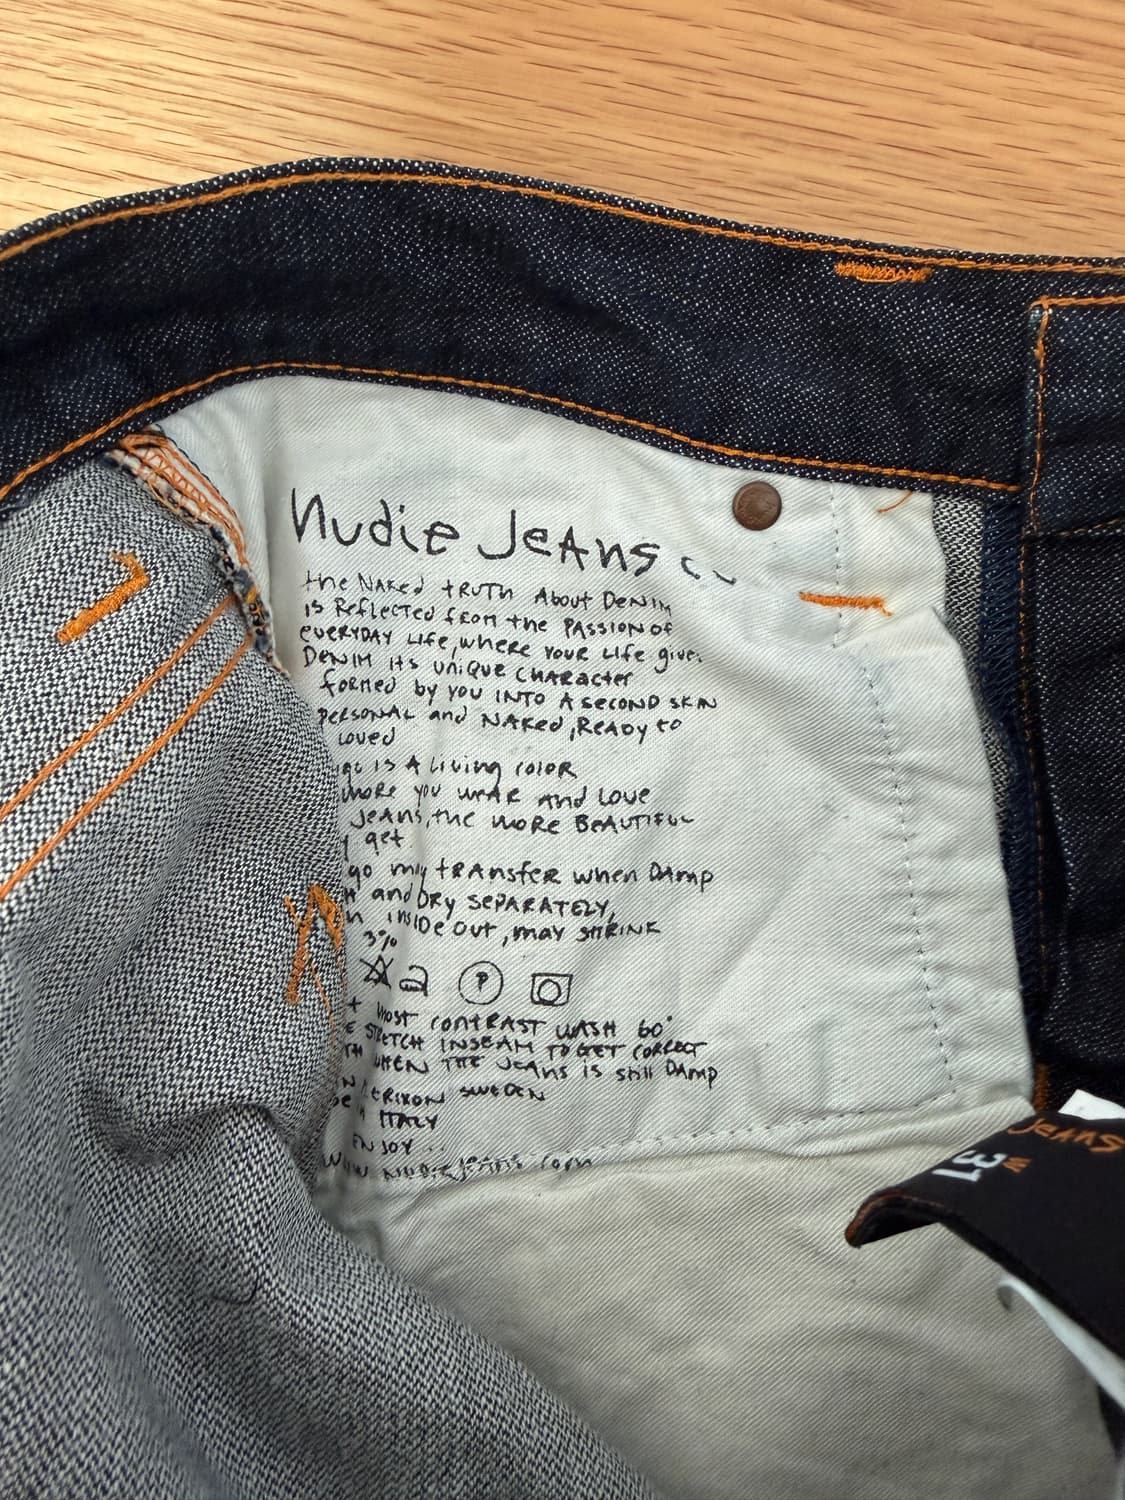 Nudie Jeans
the NAKed tRUTH About DeNIM
IS Reflected from the PASSION OF
eveRYDAY LIfe, wheRe YouR LIfe give
DeNIM ITS UNIQUE CHARActer
forMed by you INTO A SECOND SKIN
PeRSONAL and NAKed, ReADy to
Loved
IS A living coloR
more you weAR And Love
JeAns, the MORe BeAUTIFUL
get
go may tRAnsfeR when DAmp
and DRy SePARATELY,
inSIDe Out, may SHRINK
3%
MOST CONTRAST WASH 60°
STRETCH INSEAM TO GET CORRECT
WHEN THE JeAns IS still DAMp
eRIXON SWEDEN
ITALY
ENJOY..
www.nudiejeans.com
W
31